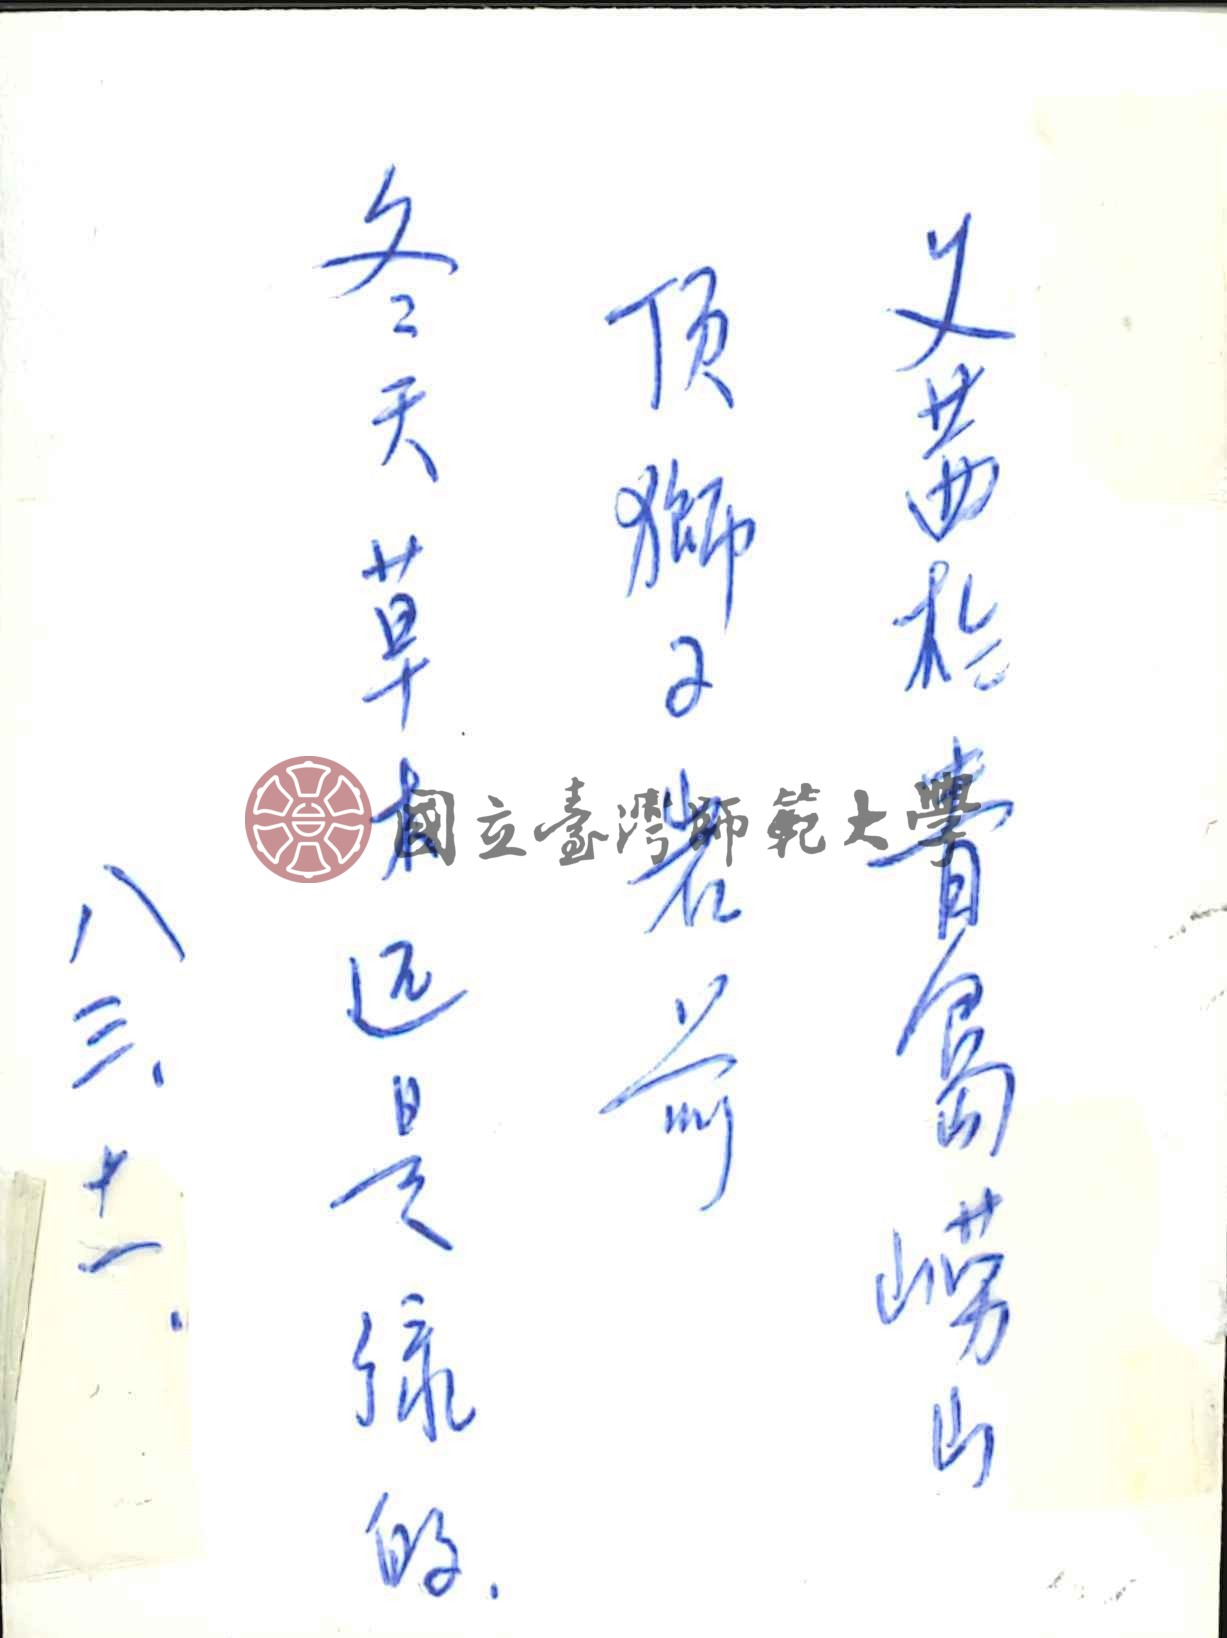 又茜於青島嶗山
顶獅子岩前
冬天草木还是绿的.
八三、十一.
國立臺灣師範大學